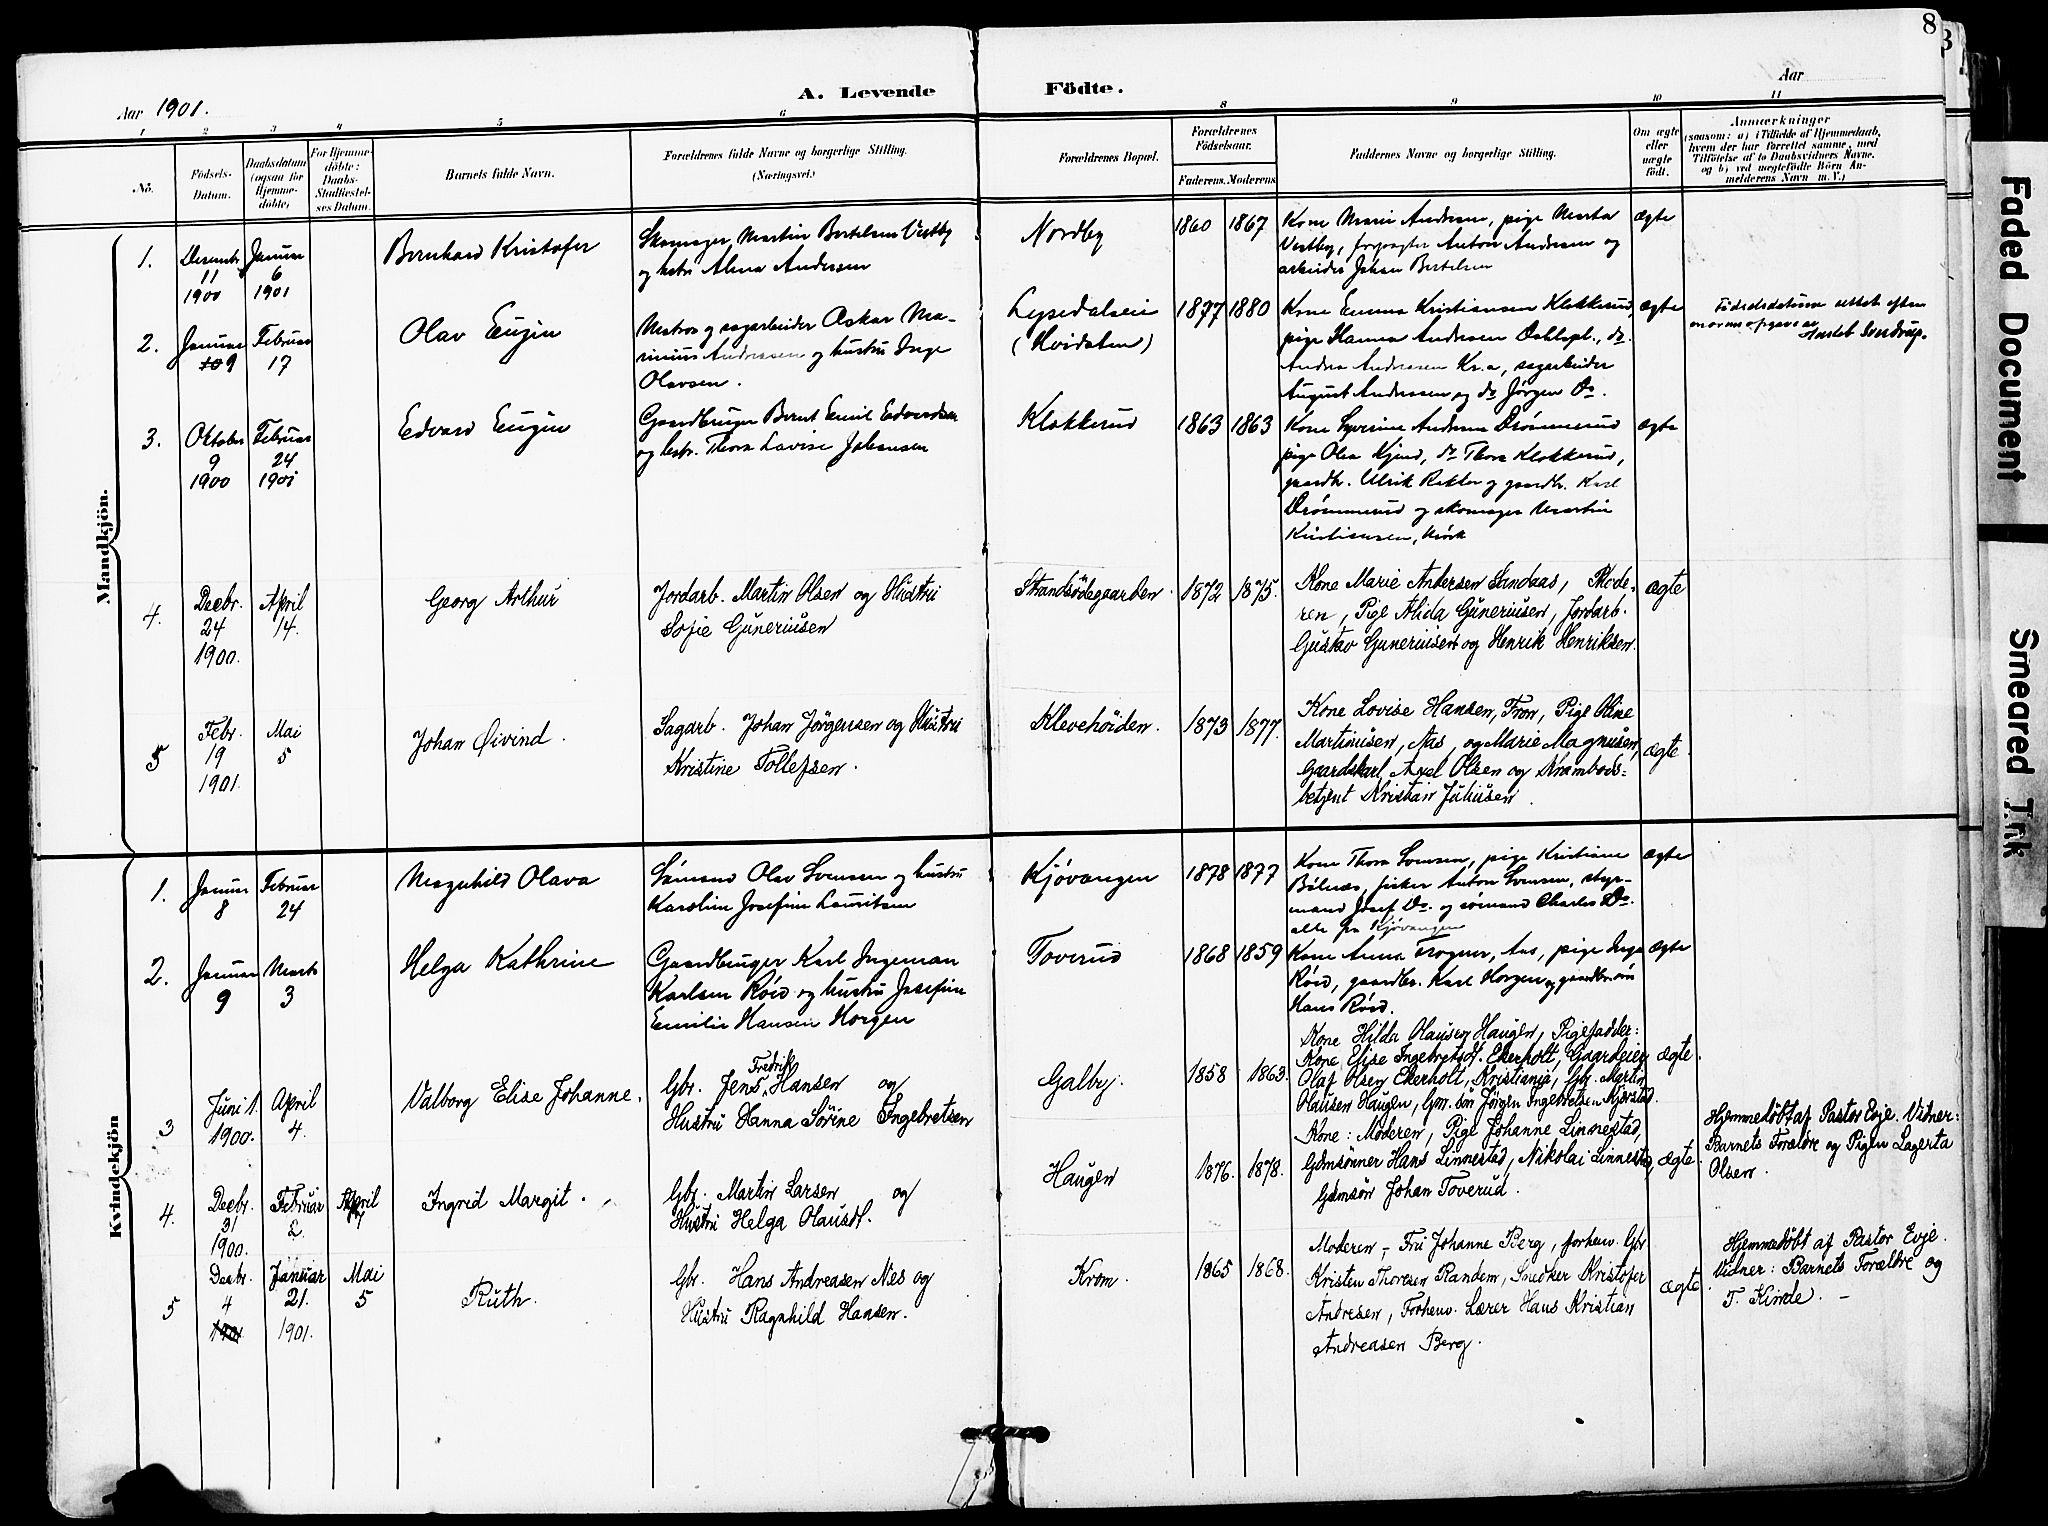 8
Aar 1901.
A. Levende Födte.
Aar
1 2 3 4 5 6 8 9 10 11
No.
Födsels-Datum.
Daabsdatum (ogsaa for Hjemmedöbte)
For Hjemmedöbte: Daabs-Stadfæstelses Datum.
Barnets fulde Navn.
Forældrenes fulde Navne og borgerlige Stilling.
(Næringsvei.)
Forældrenes Bopæl.
Forældrenes Födselsaar.
Faderens. Moderens
Faddernes Navne og borgerlige Stilling.
Om ægte eller uægte født.
Anmærkninger
(saasom: a) i Tilfælde af Hjemmedaab, hvem der har forrettet samme, med Tilföielse af to Daabsvidners Navne. og b) ved uægtefödte Börn Anmelderens Navn m. V.)
Mandkjön.
1.
Decembr 11 1900
Januar 6 1901
Bernhard Kristofer
Skomager Martin Bertelsen Vestby
og hstr Alma Andersen
Nordby
1860 1867
Kone Marie Andersen, pige Marta
Vestby, forpagter Anton Andersen og
arbeider Johan Bertelsen
ægte
2.
Januar 9
Februar 17
Olav Eugin
Matros og sagarbeider Oskar Ma-
rinius Andressen og hustru Inga
Olavsen.
Lysedalseie
(Hvidsten)
1877 1880
Kone Emma Kristiansen Klokkerud,
pige Hanna Andersen, do.
Andrea Andreasen Kr.a, sagarbeider
August Andreasen og do Jörgen Do.
ægte
Födselsdatum rettet efter
3.
Oktober 9 1900
Februar 24 1901
Edvard Eugin
Gaardbruger Bernt Emil Edvardsen
og hstr. Thora Lovise Johansen
Klokkerud
1863 1863
Kone Syverine Andersen Drömmerud
pige Olea Kjend, do Thora Klokkerud,
gaardbr. Ulrik Rakler og gaardbr. Karl
Drömmerud og skomager Martin
Kristiansen, Mörk
ægte
4.
Decbr. 24 1900.
April 14.
Georg Arthur
Jordarb. Martin Olsen og Hustru
Sofie Guneriusen
Strandsödegaarden.
1872 1875.
Kone Marie Andersen Sandaas, Mode-
ren, Pige Alida Guneriusen, Jordarb.
Gustav Guneriusen og Henrik Henriksen.
ægte
5
Febr. 19 1901.
Mai 5
Johan Øivind.
Sagarb. Johan Jörgensen og Hustru
Kristine Tollefsen.
Klevehöiden.
1873 1877.
Kone Lovise Hansen, Tron, Pige Oline
Martiniusen, Aas, og Marie Magnusen,
Gaardskarl Axel Olsen og Krambods-
betjent Kristian Juliusen.
ægte.
Kvindekjön
1.
Januar 8
Februar 24
Magnhild Olava
Sömand Olav Svensen og hustru
Karoline Josefine Lauritsen
Kjövangen
1878 1877
Kone Thora Svensen, pige Kristiane
Bölnæs, fisker Anton Svensen, styr-
mand Josef Do. og sömand Charles Do.
alle fra Kjövangen
ægte
2.
Januar 9
Marts 3
Helga Kathrine
Gaardbruger Karl Ingeman
Karlsen Röed og hustru Josefine
Emilie Hansen Horgen
Toverud
1868 1859
Kone Anna Trogner, Aas, pige Inga
Röed, gaardbr. Karl Horgen og gaardbr.sön
Hans Röed.
ægte
3
Juni 1. 1900.
April 4.
Valborg Elise Johanne.
Gbr. Jens Fredrik Hansen og
Hustru Hanna Sörine Ingebretsen
Galby.
1858 1863.
Kone Hilda Olausen Haugen, Pigefadder:
Kone Elise Ingebretsdt. Ekerholt, Gaardeier
Olaf Olsen Ekerholt, Kristiania, Gbr. Martin
Olausen Haugen, Gm. sön Jörgen Ingebretsen Kjerstad.
ægte.
4.
Decbr. 31 1900.
Februar 2.
April 7
Ingrid Margit.
Gbr. Martin Larsen og
Hustru Helga Olausdt.
Haugen
1876. 1878.
Kone: Moderen, Pige Johanne Linnestad,
Gdmsönner Hans Linnestad, Nikolai Linnestad,
Gdmsön Johan Toverud.
ægte.
Hjemmedöbt af Pastor Evje. Vidner:
Barnets Forældre og Pigen Lagerta
Olsen.
5
Decbr. 4 1901
Januar 21. 1901.
Mai 5
Ruth.
Gbr. Hans Andreasen Nes og
Hustru Ragnhild Hansen.
Krom.
1865 1868.
Moderen, Fru Johanne Berg, forhenv. Gbr
Kristen Thoresen Randem, Snedker Kristofer
Andresen, Forhenv. Lærer Hans Kristian
Andreasen Berg.
ægte
Hjemmedöbt af Pastor Evje.
Vidner: Barnets Forældre og
T. Kinde. —
Faded Document
Smeared Ink